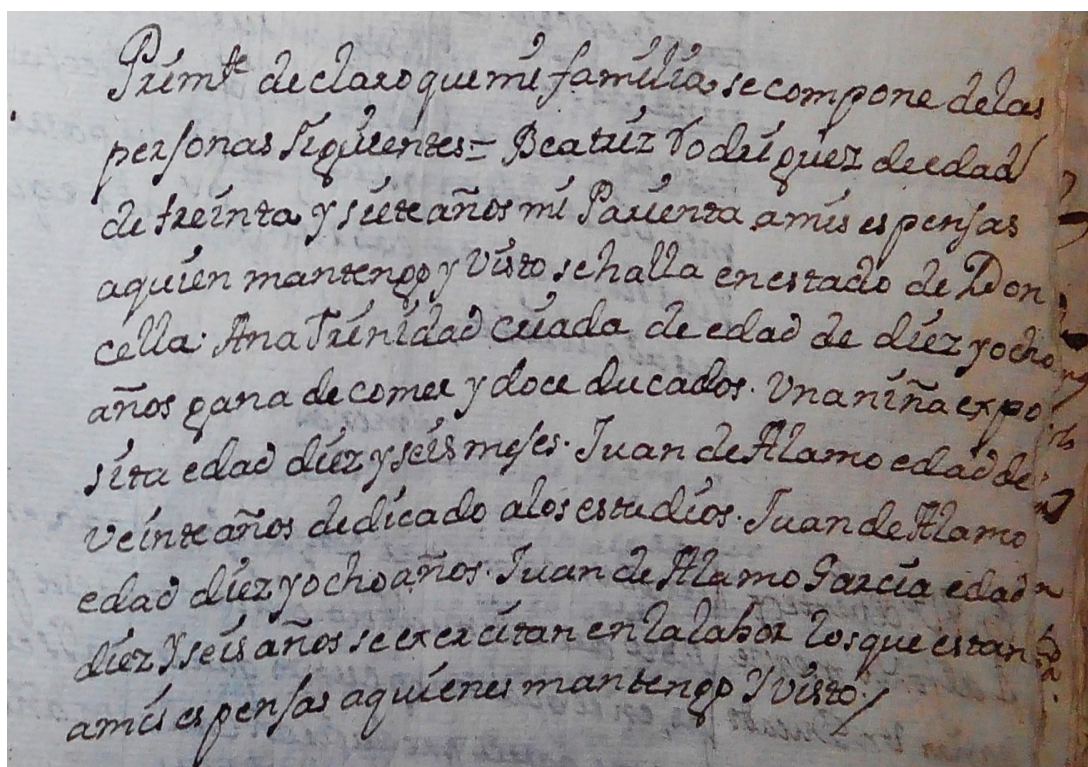 Primte declaro que mi familia se compone delas
personas siguientes= Beatriz Rodriguez de edad
de treinta y siete años mi Parienta amis espensas
aquien mantengo y Visto se halla en estado de Don
cella. Ana Trinidad criada de edad de diez y ocho
años gana de comer y doce ducados. Una niña expo
sita edad diez y seis meses. Juan de Alamo edad de
veinte años dedicado alos estudios. Juan de Alamo
edad diez y ocho años. Juan de Alamo Garcia edad
diez y seis años se exercitan en la labor los que estan
amis espensas aquienes mantengo y visto./